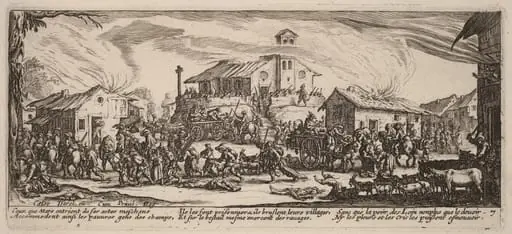 Israel ex. Cum Priuil. Reg.
Ceux que Mars entretient de ses actes meschans
Accommodent ainsi les pauures gens des champs,
Ils les font prisonniers, ils bruslent leurs villages,
Et sur le bestail mesme exercent des rauages,
Sans que la peur des Loix non plus que le deuoir
Ny les pleurs et les cris les puissent esmouuoir.
7